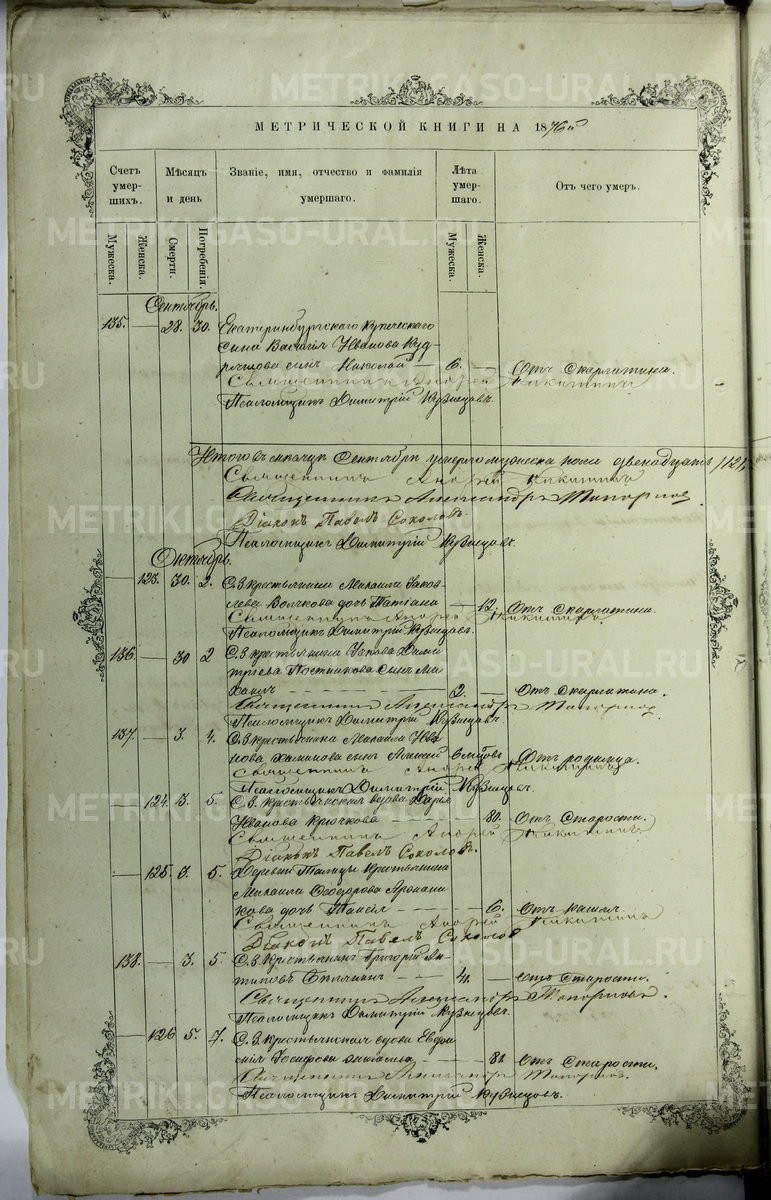 МЕТРИЧЕСКОЙ КНИГИ НА 1876й
Счетъ умер-шихъ.
Мѣсяцъ и день
Званіе, имя, отчество и фамилія умершаго.
Лѣта умер-шаго.
Отъ чего умеръ.
Мужеска.
Женска.
Смерти.
Погребенія.
Мужеска.
Женска.
Сентябрь.
135. — 28. 30. Екатеринбургскаго Купеческаго
сына Василія Иванова
сынъ Николай — 6. — Отъ Скарлатина.
Священникъ Андрей Никитинъ
Псаломщикъ Димитрій Кузнецовъ.
Итого въ Сентябрѣ умерло мужеска пола двенадцать /12/.
Священникъ Андрей Никитинъ
Священникъ Александръ Топорковъ.
Діаконъ Павелъ Соколовъ.
Псаломщикъ Димитрій Кузнецовъ.
Октябрь.
— 123. 30. 2. С. З. крестьянина Михаила Яков-
лева Волкова дочь Татіана — 12. Отъ Скарлатина.
Священникъ Андрей Никитинъ
Псаломщикъ Димитрій Кузнецовъ.
136. — 30 2 С. З. крестьянина Якова Дими-
тріева Постникова сынъ Ми-
хаилъ — 2. — Отъ Скарлатина.
Священникъ Александръ Топорковъ
Псаломщикъ Димитрій Кузнецовъ
137. — 3. 4. С. З. Крестьянина Михаила Ива-
нова сынъ Алексѣй Отъ родимца.
Священникъ Андрей Никитинъ
Псаломщикъ Димитрій Кузнецовъ.
— 124. 3. 5. С. З. Крестьянская вдова Дарья
Иванова Крючкова — 80. Отъ Старости.
Священникъ Андрей Никитинъ
Діаконъ Павелъ Соколовъ.
— 125. 3. 5. Деревни Талицы Крестьянина
Михаила Ѳеодорова
дочь Таисія — 6. Отъ кашля
Священникъ Андрей Никитинъ
Діаконъ Павелъ Соколовъ
138. — 3. 5. С. З. Крестьянинъ Григорій Ан-
типовъ — Отъ Старости.
Священникъ Александръ Топорковъ.
Псаломщикъ Димитрій Кузнецовъ.
— 126 5. 7. С. З. Крестьянская вдова Евдо-
кія Іосифова — Отъ Старости.
Священникъ Александръ Топорковъ.
Псаломщикъ Димитрій Кузнецовъ.
METRIKI.GASO-URAL.RU